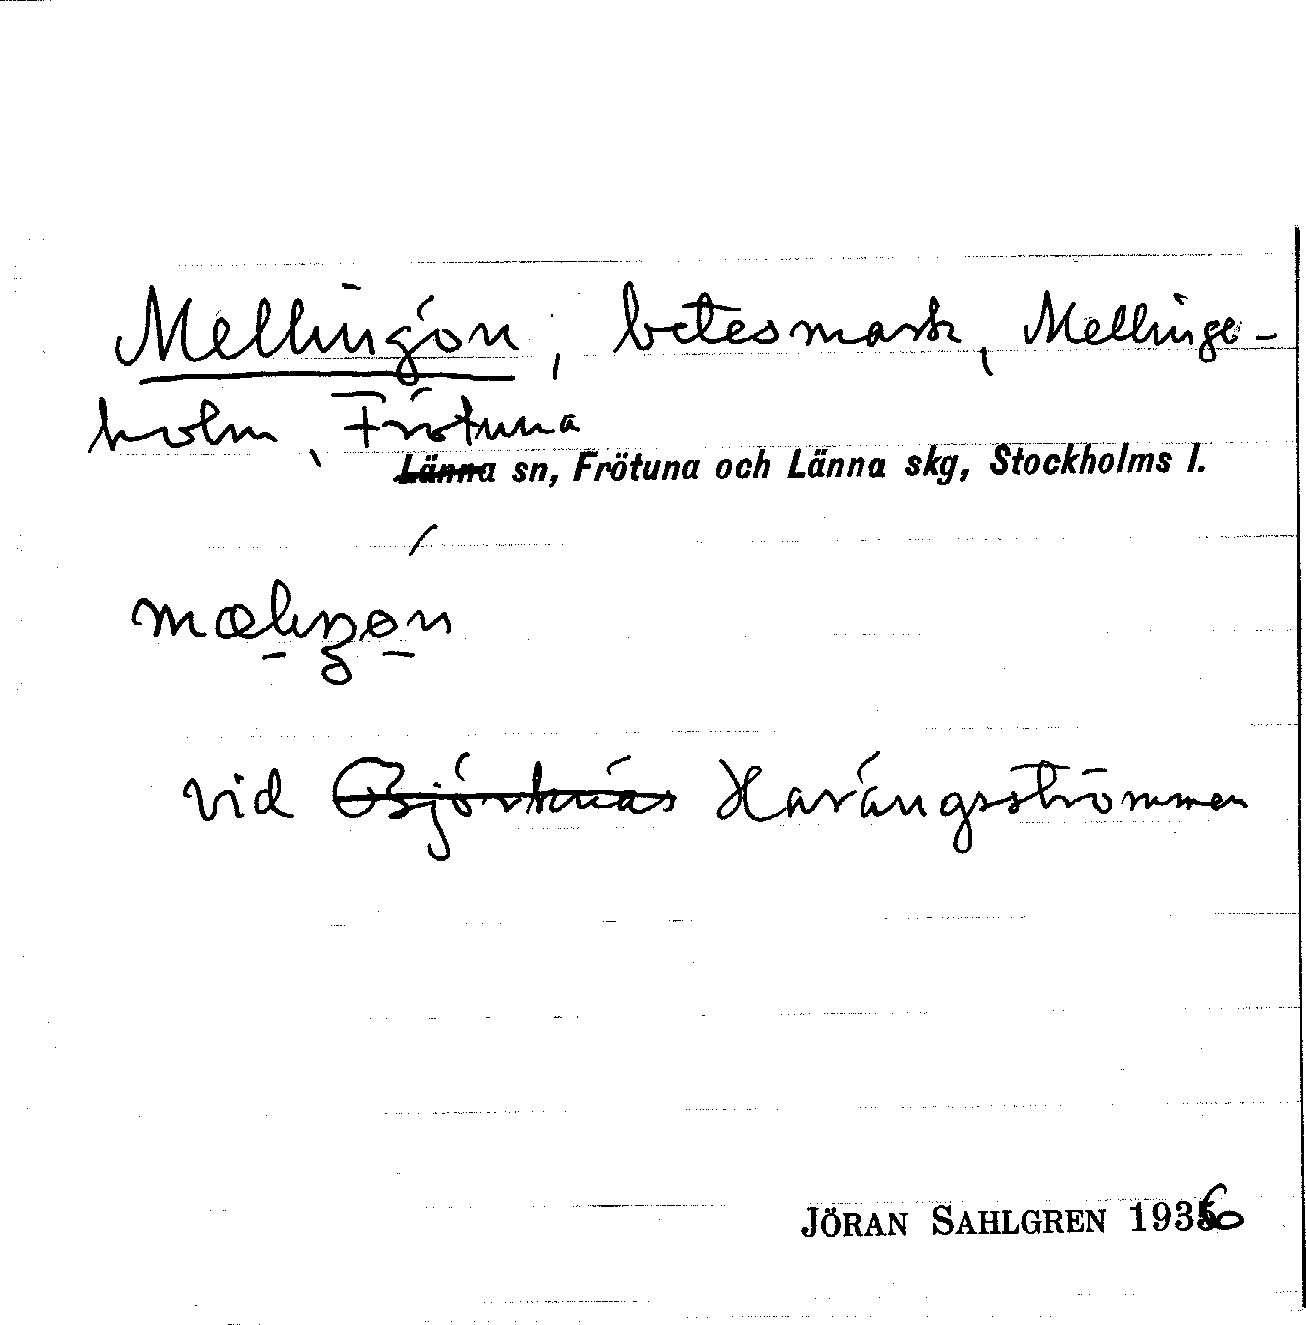 Mellingön, betesmark, Mellinge-
holm, Frötuna
Länna sn, Frötuna och Länna skg, Stockholms l.
mæliŋøn
vid Björknäs Harängsströmmen
JÖRAN SAHLGREN 1936